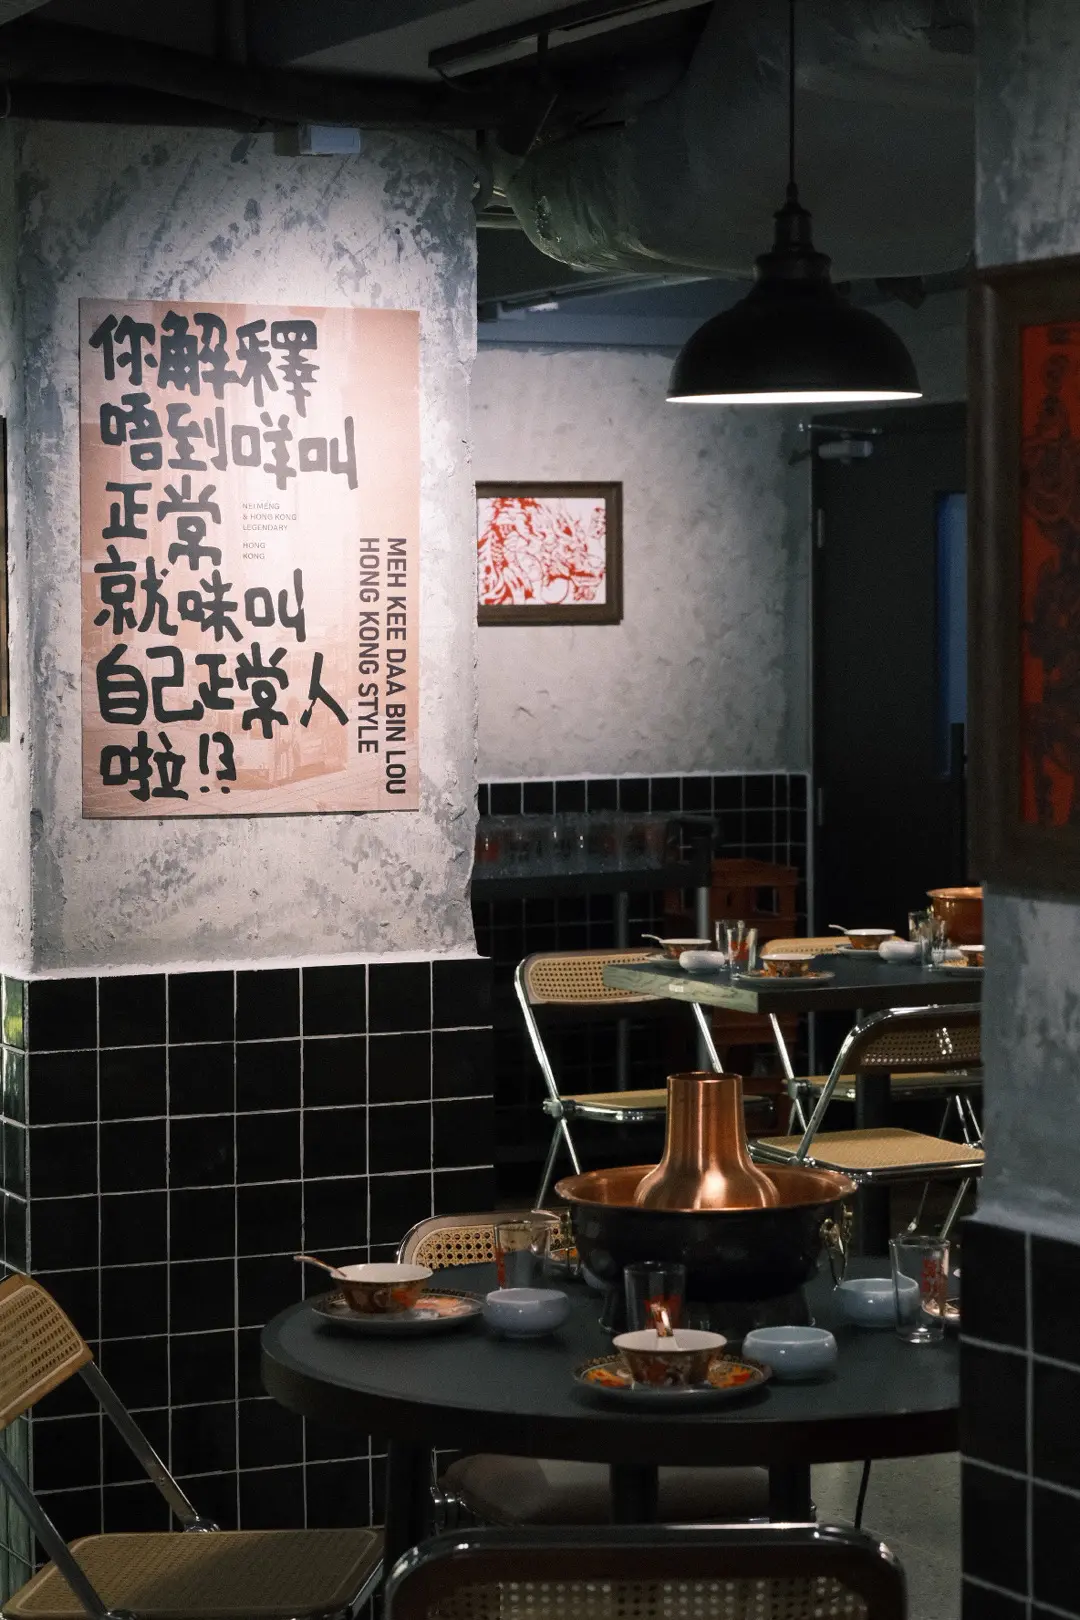 你解釋
唔到咩叫
正常
就咪叫
自己正常人
啦!?
NEI MENG
& HONG KONG
LEGENDARY
HONG
KONG
MEH KEE DAA BIN LOU
HONG KONG STYLE